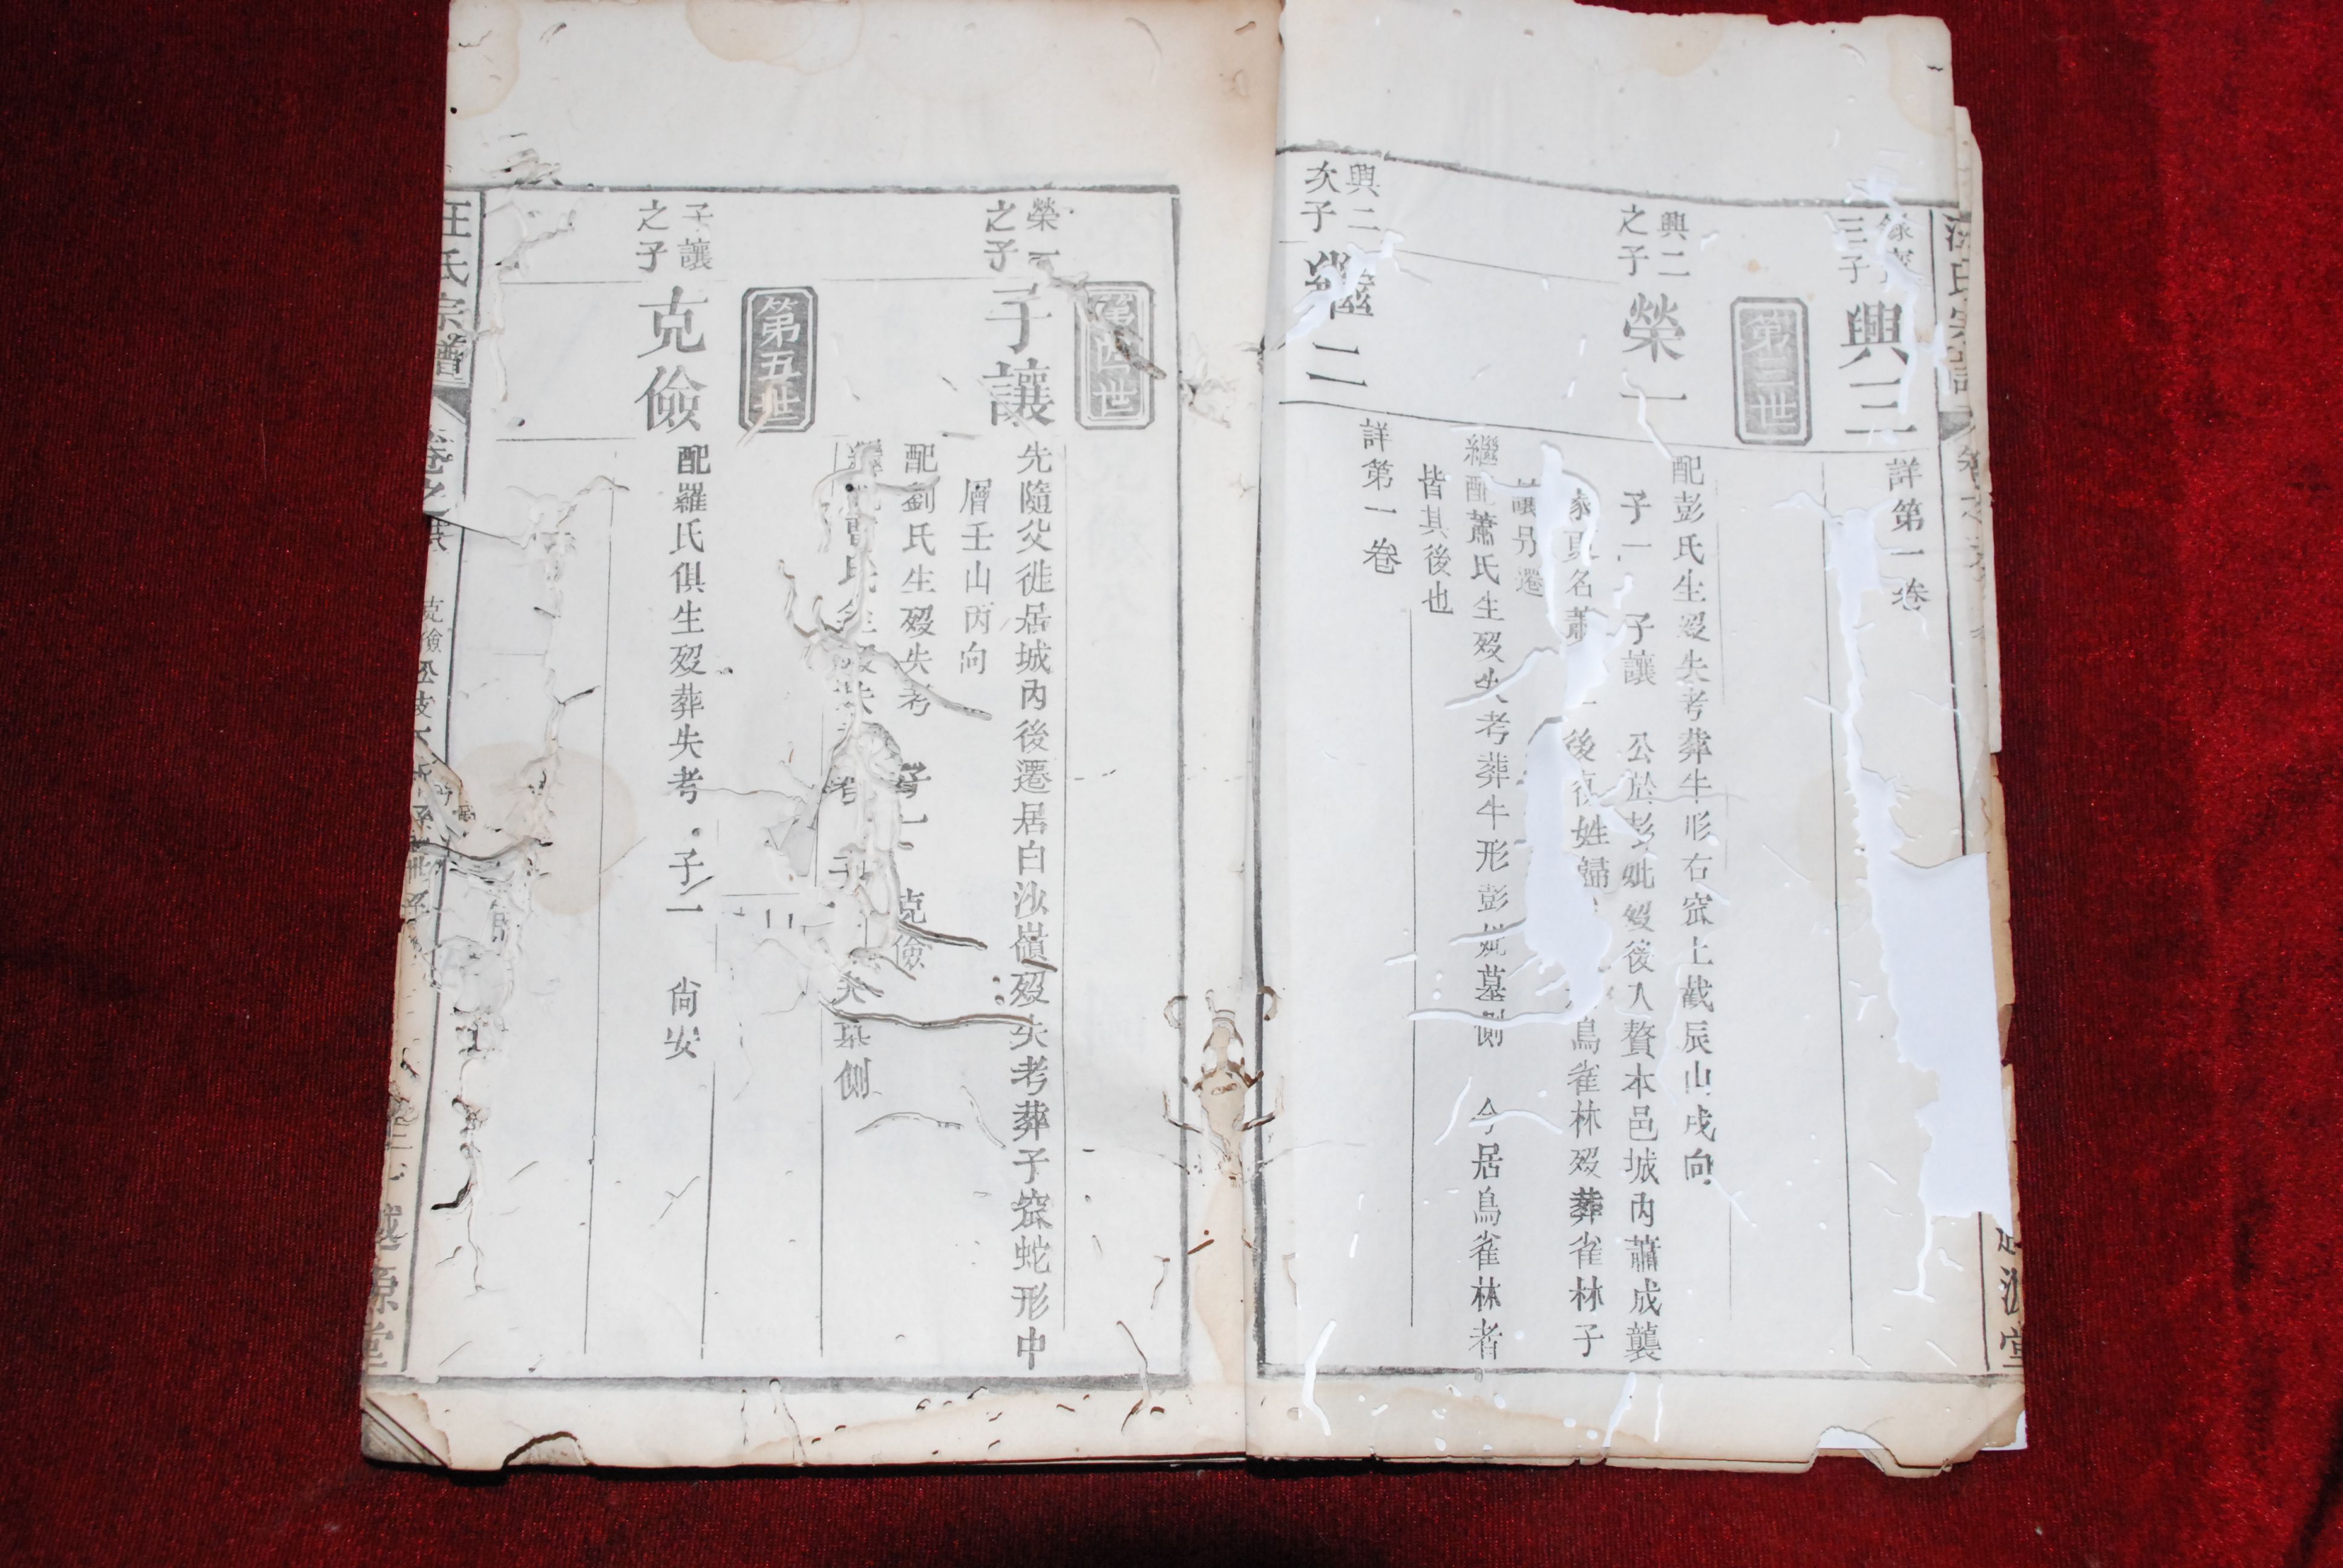 三子
興三
詳第一卷
第三世
興二
之子
榮一
配彭氏生歿失考葬牛形右窊上截辰山戌向
子一 子讓 公於彭妣歿後入贅本邑城內蕭成襲
家更名蕭 後復姓歸 鳥雀林歿葬雀林子
讓另遷
繼配蕭氏生歿失考葬牛形彭妣墓側 今居鳥雀林者
皆其後也
興二
次子
繼二
詳第一卷
第四世
榮一
之子
子讓
先隨父徙居城內後遷居白沙嶺歿失考葬子窊蛇形中
層壬山丙向
配劉氏生歿失考 子一 克儉
氏生歿失考 墓側
第五世
子讓
之子
克儉
配羅氏俱生歿葬失考 子一 尙安
汪氏宗譜
卷之
克儉公支
越源堂